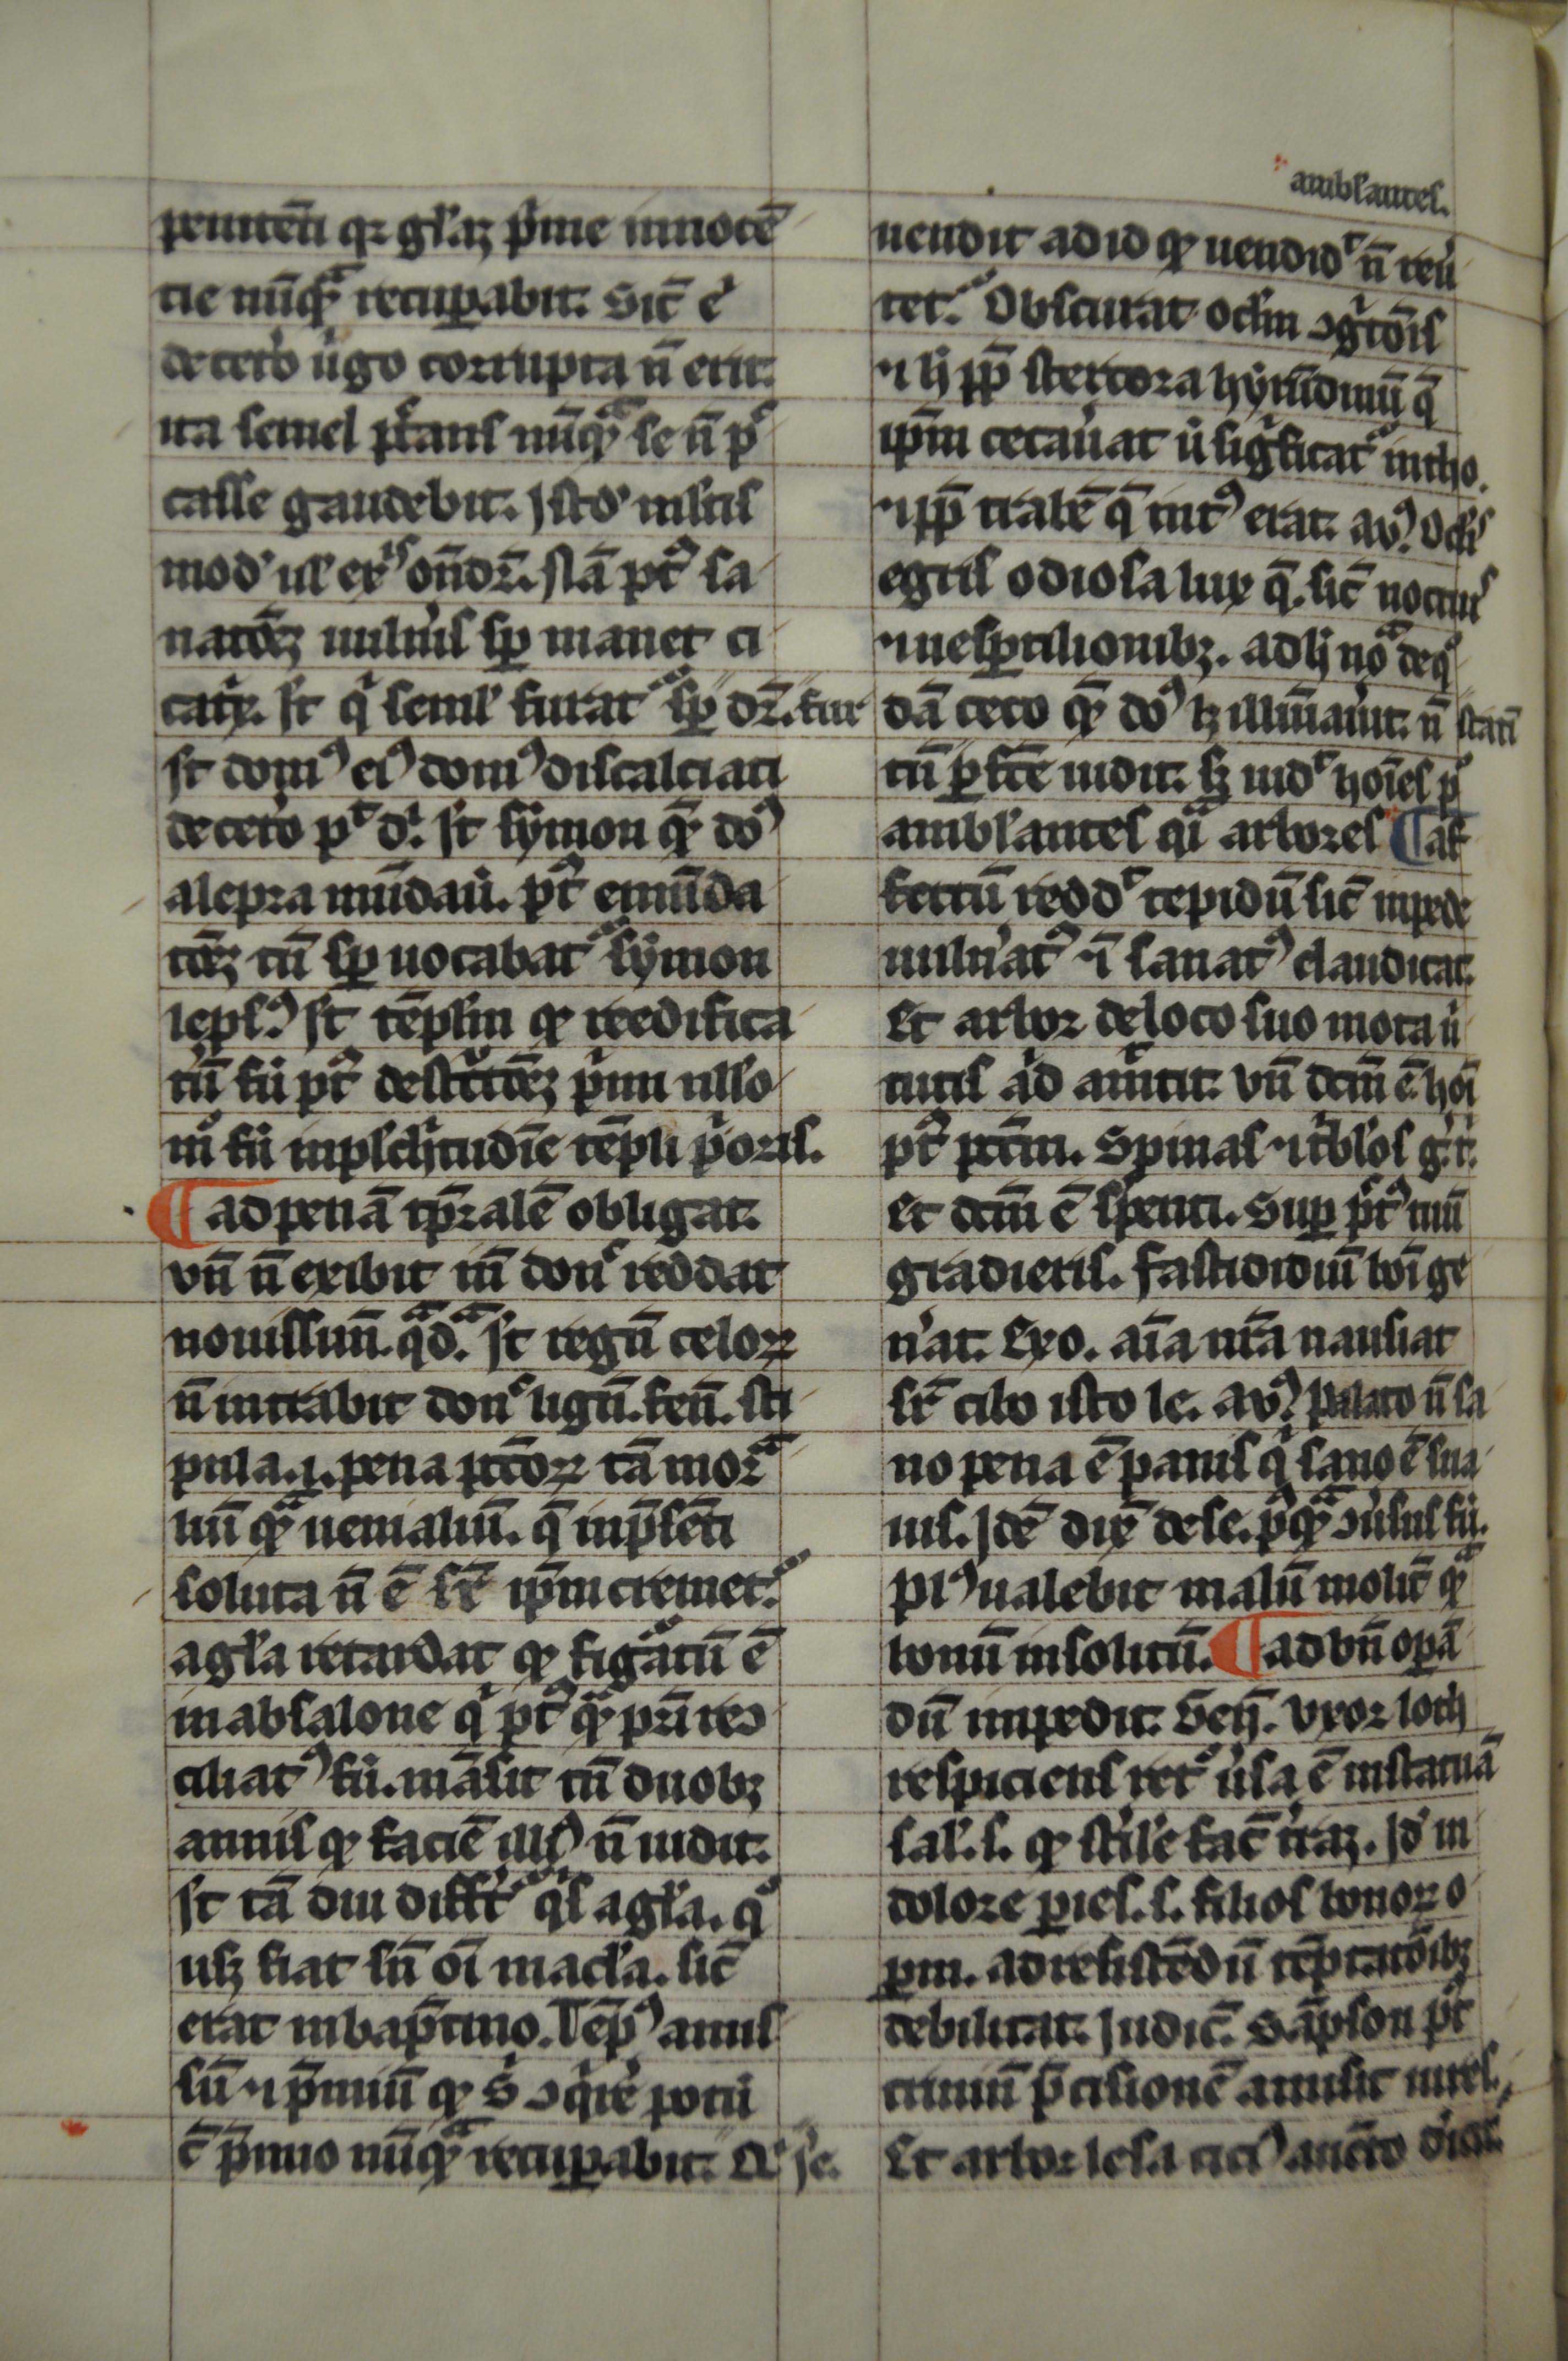 penitēti qz gl'az p̄me innocē
cie nūq̄ recuꝑabit. Sic̄ e'
decet'o u'go corrupta n̄ erit.
ita semel pccans nūq̄ se n̄ pec
casse gaudebit.
mod' ondr̄. nā pt̕ sa
natōez uuln'is sꝑ manet ci
catx. sic q' semel furat' sꝑ dr̄. fur
sic dom' ei' dom' discalciati
decet'o pt̕ d'r. sic symon q̄ dn̄s
a lepra mūdau'. pt̕ emūda
tōez tn̄ sꝑ uocabat' symon
lepsus. sic tēplm qd reedifica
tū fu' pt̕ destructōez p'mi illo
m° fu' in pulchtudīe tēpli p'oris.
¶ ad penā tp̄ralē obligat.
vn̄ n̄ exibit in̄ donec reddat
nouissimū q̄d. sic regnū celoꝝ
n̄ intrabit donec lignū. fenū. sti
pula .i. pena pccōꝝ tā mor
liū q̄ uenialiū. q̄ in p̄sēti
soluta n̄ ē sr̄ ip̄m cremet'.
a gl'a retardat qd figatū ē
in absalone q' pt̕ q̄ pr̄i reco
ciliat' fu'. māsit tn̄ duobz
annis qd faciē illi' n̄ uidit.
sic tā diu differt' q's a gl'a. q°
usqz fiat sn̄ oī macl'a. sic̄
erat in baptismo. Tēp' amis
sū ⁊ p̄miū qd s' ɔqrere potu'
c̄ p̄mio nūq̄ recuꝑabit.
ambl'antes.
uendit ad id qd uendid't n̄ reu'
tet'. Obscurat ocl'm ɔgtōis
⁊ h' pp̄ stercora hyrūdinū q̄
ip̄m cecau'at u' sig'ficat' in tho.
⁊ pp̄ trabē q̄ int' erat. aug. Oclis
egris odiosa lux q̄. sic̄ noctuis
⁊ uesꝑtilionibz. ad h' no de q°
dā ceco q̄ dn̄s lz illūiauit. n̄ statī
tn̄ ꝑfcē uidit. sz uid't hoīes p̄
ambl'antes q̄i arbores ¶ af
fectū redd't tepidū sic̄ in pede
uuln'at' ⁊ sanat' claudicat.
Et arbor de loco suo mota u'
tutis a'd amittit. vn̄ dcm̄ ē hoī
pt̕ pccm. Spinas ⁊ tbl'os g'. t'.
Et dcm̄ ē sꝑenti. Suꝑ pct' tuū
gradieris. fastidiū boī ge
n'at. Exo. aīa nr̄a nausiat
sr̄ cibo isto le. aug. Palato n̄ sa
no pena ē panis q' sano ē sua
uis. Idē dix de se. pꝰq̄ ɔu'sus fu'.
Pl' ualebit malū molit q̄
bonū insolitū. ¶ ad bn̄ oꝑā
dū impedit. Gen. Vxor loth
respiciens ret° u'sa ē in statuā
sal'. s. qd stile fac̄ t'az. Id' in
dolore ꝑies. s. filios bonoꝝ o
ꝑm. ad resistēdū tēptatōibz
debilitat. Judic̄. Sāpson pt̕
criniū p̄cisionē amisit uires.
Et arbor lesa